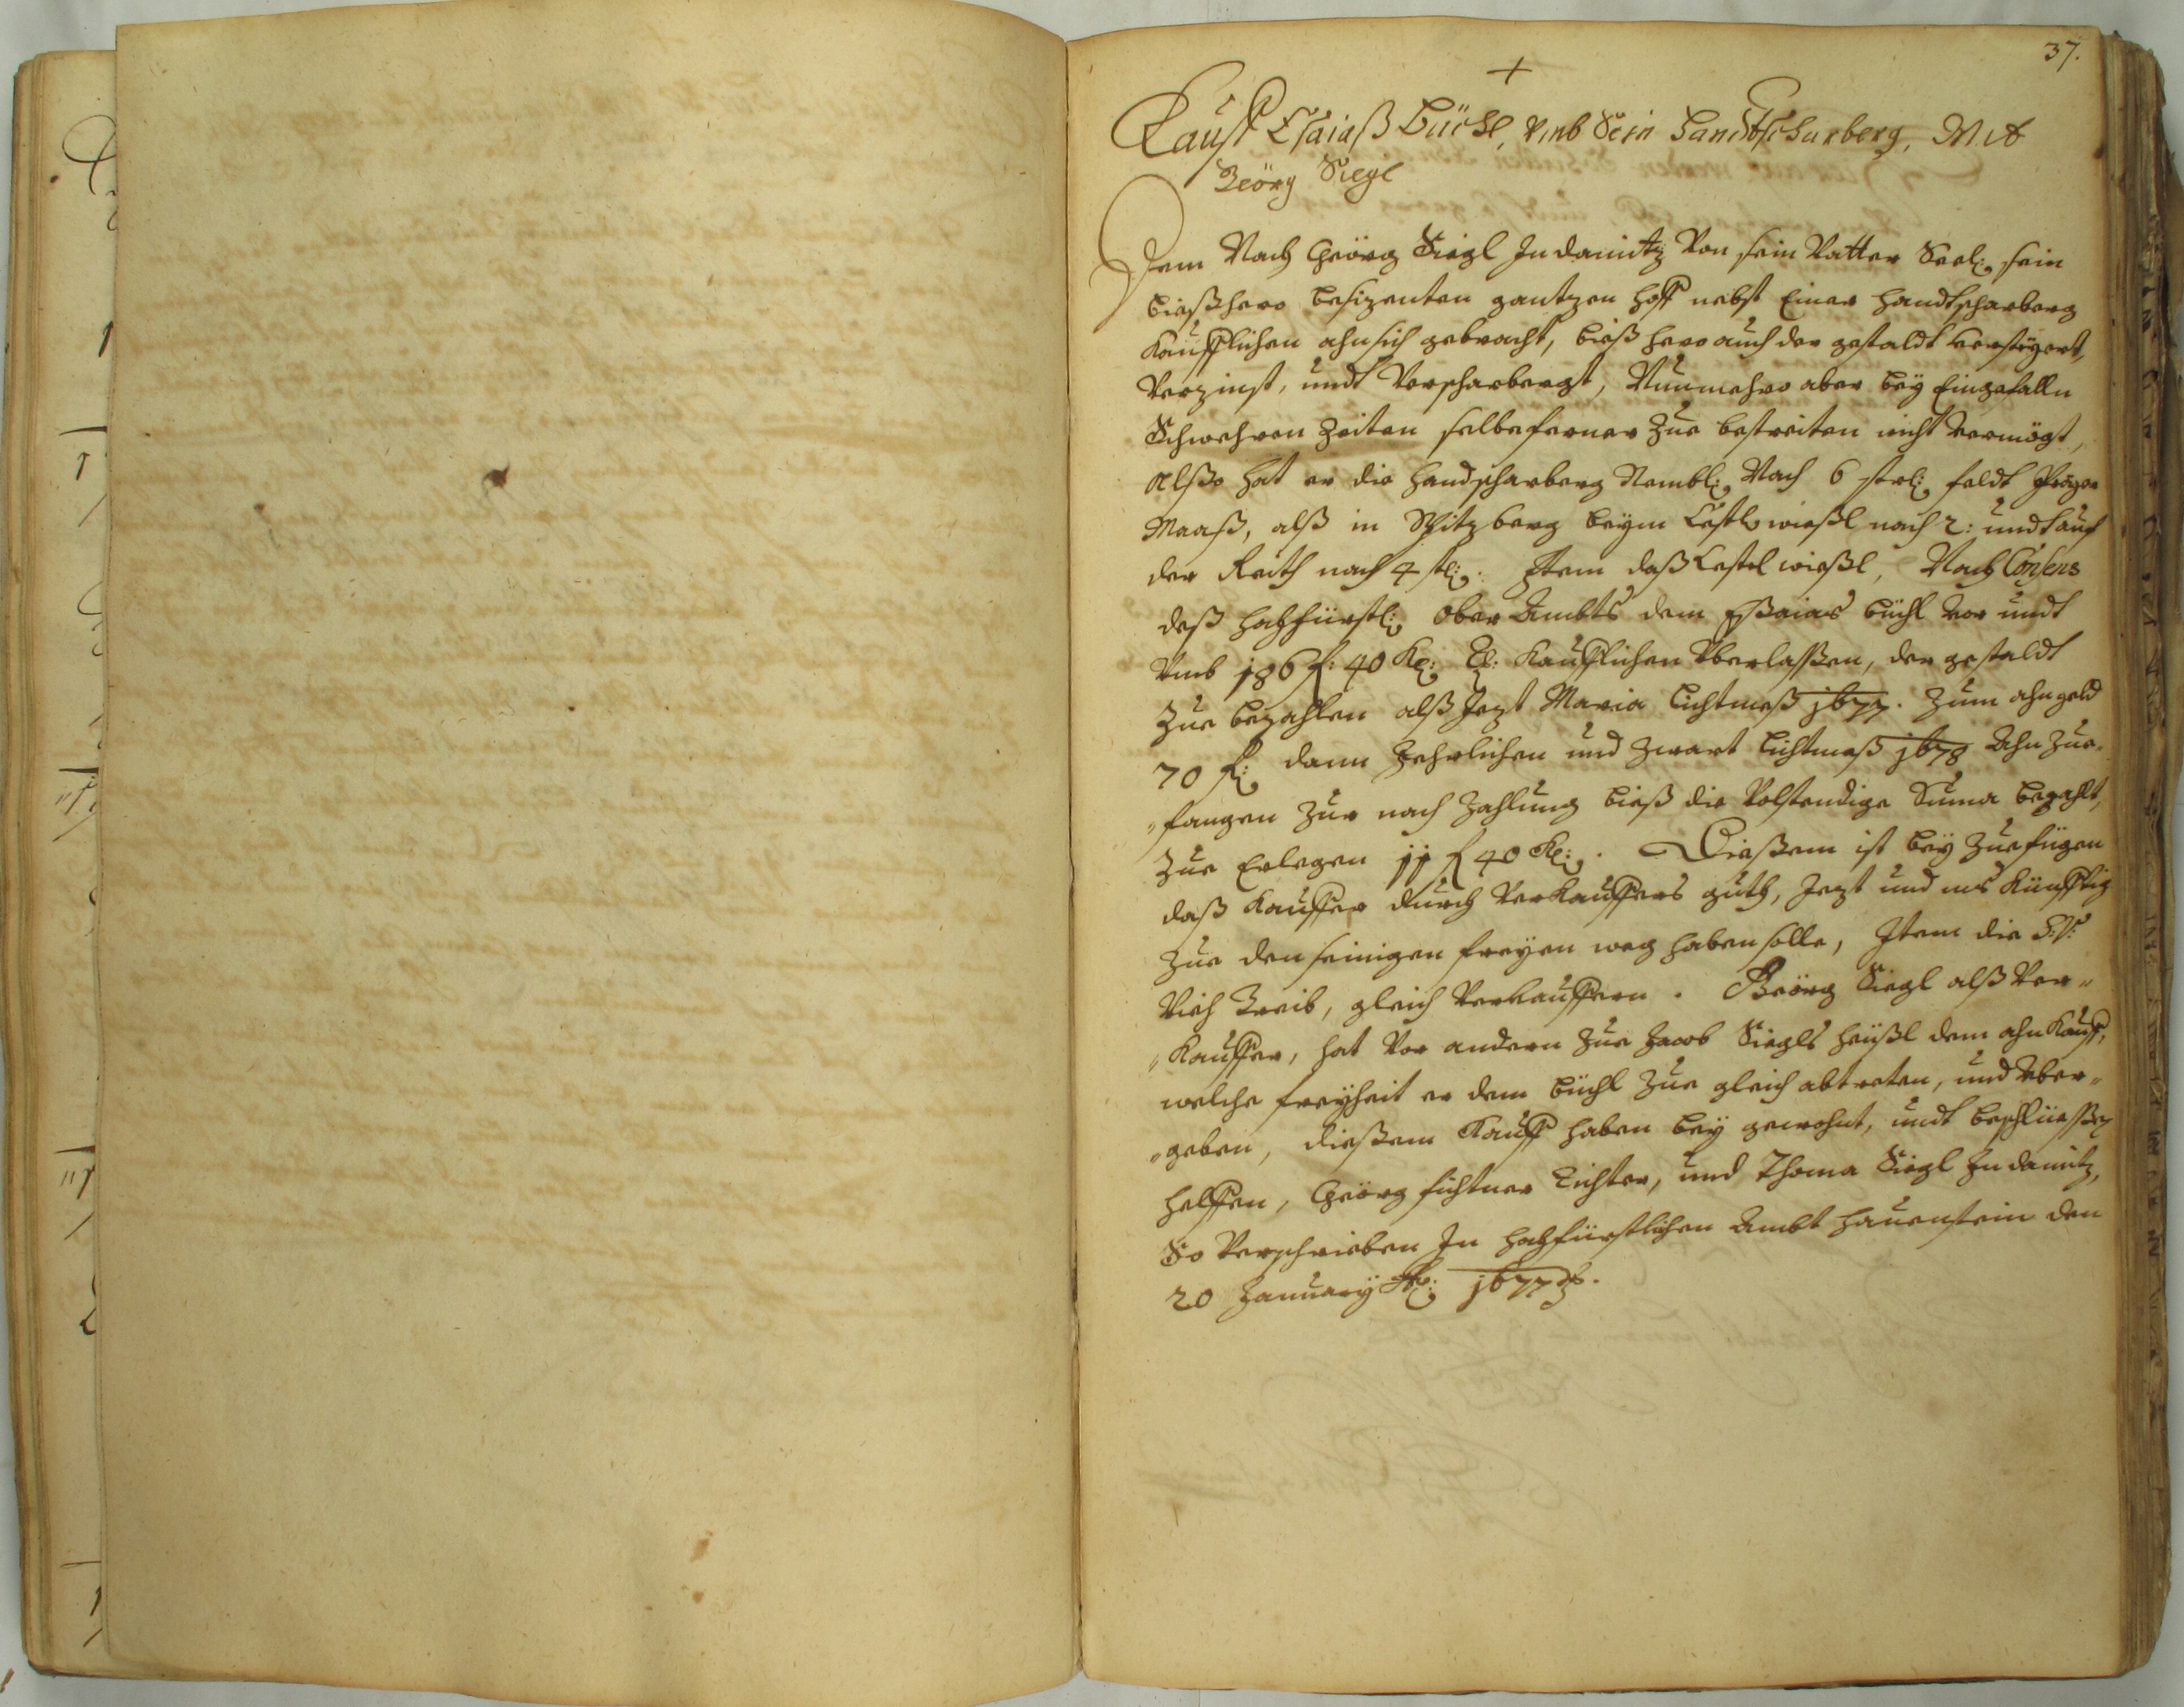 37.
+
Kauff Esaiaß Büchl, umb Sein Handtscharberg, Mit
Geörg Siegl
Dem Nach Geörg Siegl In damitz Von sein Vatter Seel: sein
bießhero besizenten gantzen Hoff nebst Einer Handtscharberg
Kaufflichen ahn sich gebracht, bieß hero auch der gestaldt versteyert,
Verzinst, undt Verscharbergt, Nunmehro aber bey Eingefalln
Schwehren Zeiten selbe ferner Zue bestreiten nicht Vermögt,
Alßo hat er die Handscharberg Nembl: Nach 6 strl: feldt Prager
Maaß, alß in Spitzberg beym Lestl wießl nach 2: undt auf
der Reith nach 4 stl: Item daß Lestel wießl, Nach Consens
deß Hochfürstl: Ober Ambts dem Eßaias Büchl vor undt
Umb 186 f: 40 Kr: Kaufflichen Uberlaßen, der gestaldt
Zue bezahlen alß Jezt Maria Lichtmeß 1677. Zum ahngeld
70 f: dann Jehrlichen und Zwart Lichtmeß 1678 Ahn Zue-
„fangen Zur nach Zahlung bieß die Volstendige Suma bezahlt,
Zue Erlegen 11 f 40 Kr: Dießem ist bey Zuefügen
daß Kauffer durch Verkauffers guth, Jezt und ins Künfftig
Zue den seinigen freyen weg haben solle, Item die S: V:
Vieh Treib, gleich Verkauffern. Geörg Siegl alß Ver-
„Kauffer, hat Vor andern Zue Jacob Siegls Heüßl dem ahn Kauff,
welche freyheit er dem Büchl Zue gleich abtreten, und Uber-
„geben, dießem Kauff haben bey gewohnt, undt beschlüeßen
helffen, Geörg Fichtner Richter, und Thoma Siegl In damitz,
So Verschrieben In Hochfürstlichen Ambt Hauenstein den
20 January Ao: 1677